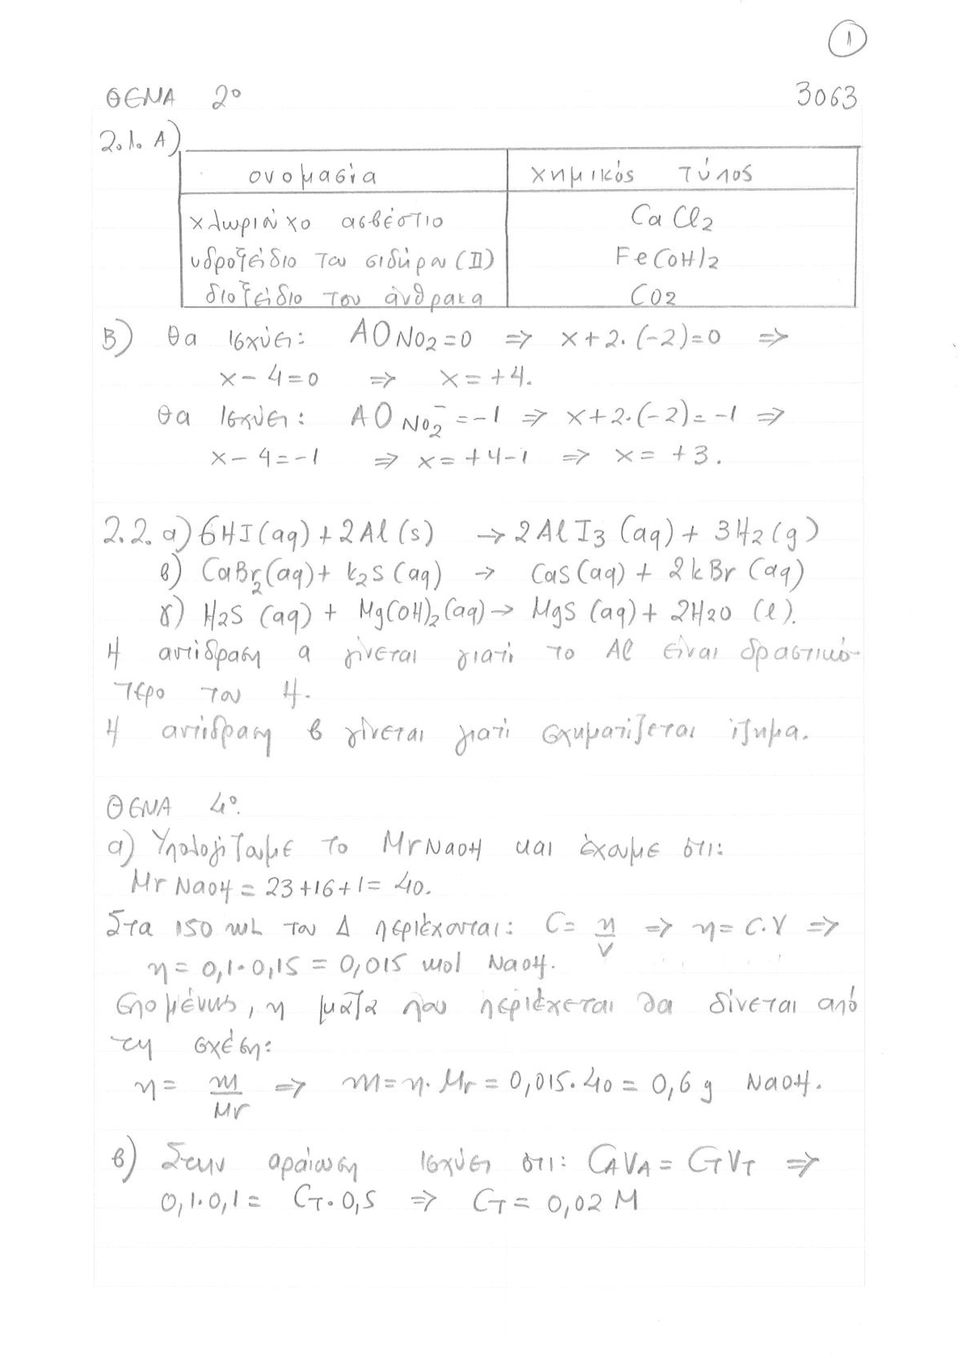 1
ΘΕΜΑ 2º 3063
2.1. Α)
ονομασία χημικός τύπος
χλωριούχο ασβέστιο CaCl2
υδροξείδιο του σιδήρου (II) Fe(OH)2
διοξείδιο του άνθρακα CO2
Β) Θα ισχύει: ΑΟ NO2=0 ⇒ x+2·(-2)=0 ⇒
x-4=0 ⇒ x=+4.
Θα ισχύει: ΑΟ NO2⁻=-1 ⇒ x+2·(-2)=-1 ⇒
x-4=-1 ⇒ x=+4-1 ⇒ x=+3.
2.2. α) 6HI(aq)+2Al(s) → 2AlI3(aq)+3H2(g)
β) CaBr2(aq)+ k2S(aq) → CaS(aq)+2kBr(aq)
γ) H2S(aq) + Mg(OH)2(aq) → MgS(aq)+2H2O(l).
Η αντίδραση α γίνεται γιατί το Al είναι δραστικό-
τερο του H.
Η αντίδραση β γίνεται γιατί σχηματίζεται ίζημα.
ΘΕΜΑ 4º.
α) Υπολογίζουμε το Mr NaOH και έχουμε ότι:
Mr NaOH = 23+16+1= 40.
Στα 150 mL του Δ περιέχονται: C= n/V ⇒ n= C·V ⇒
n= 0,1·0,15 = 0,015 mol NaOH.
Επομένως, η μάζα που περιέχεται θα δίνεται από
τη σχέση:
n= m/Mr ⇒ m=n·Mr = 0,015·40 = 0,6g NaOH.
β) Στην αραίωση ισχύει ότι: CAVA = CTVT ⇒
0,1·0,1= CT·0,5 ⇒ CT= 0,02 M